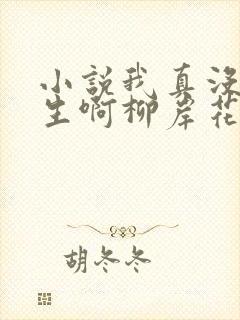 小説我真没
生啊柳岸花
胡冬冬